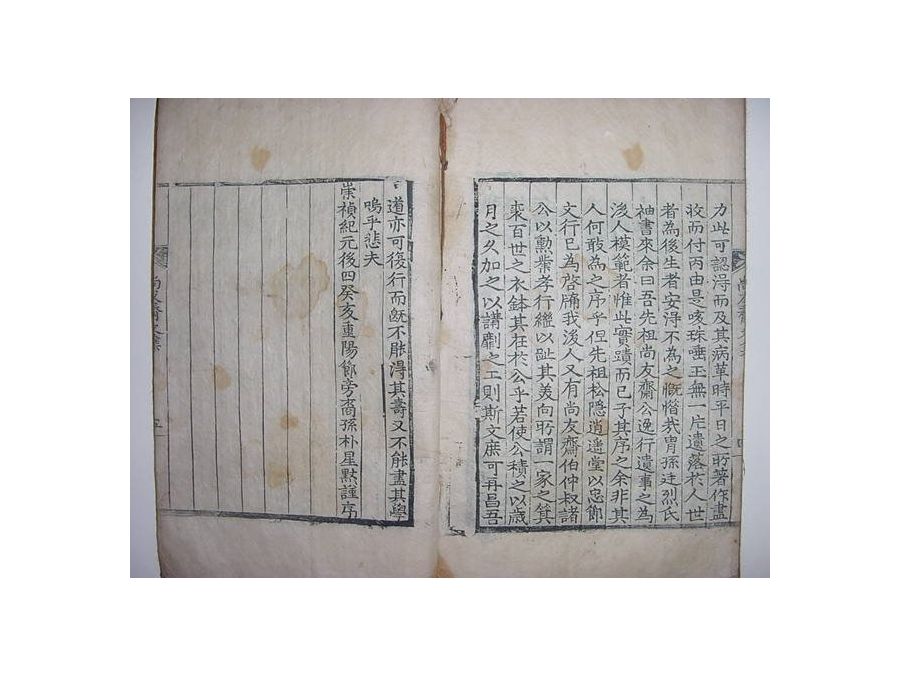 力此可認淂而及其病革時平日之所著作盡
收而付丙由是咳珠唾玉無一片遺落於人世
者為後生者安淂不為之慨惜我胄孫廷烈氏
袖書來余曰吾先祖尚友齋公逸行遺事之為
後人模範者惟此實蹟而已子其序之余非其
人何敢為之序乎但先祖松隱逍遥堂以忠節
文行已為啓牖我後人又有尚友齋伯仲叔諸
公以勲業孝行繼以趾其美向所謂一家之箕
裘百世之衣鉢其在於公乎若使公積之以歲
月之久加之以講劘之工則斯文庶可再昌吾
道亦可復行而旣不能淂其壽又不能盡其學
嗚乎悲夫
崇禎紀元後四癸亥重陽節旁裔孫朴星默謹序
尚友齋文集